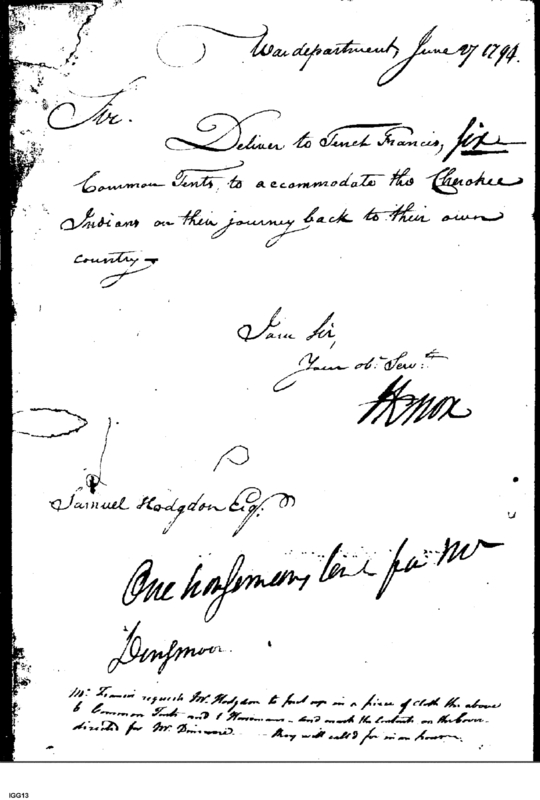 War department, June 27 1794.
Sir.
Deliver to Tench Francis, six
Common Tents, to accommodate the Cherokee
Indians on their journey back to their own
country—
I am Sir,
Your obt. Servt.
HKnox
Samuel Hodgdon Esq.
One horsemans tent for Mr
Dingmoor.
Mr. Francis requests Mr. Hodgdon to put up in a piece of cloth the above
6 Common Tents and 1 Horsemans - and mark the Contents on the Cover
directed for Mr. Dinsmore - they will call'd for in an hour.
IGG13